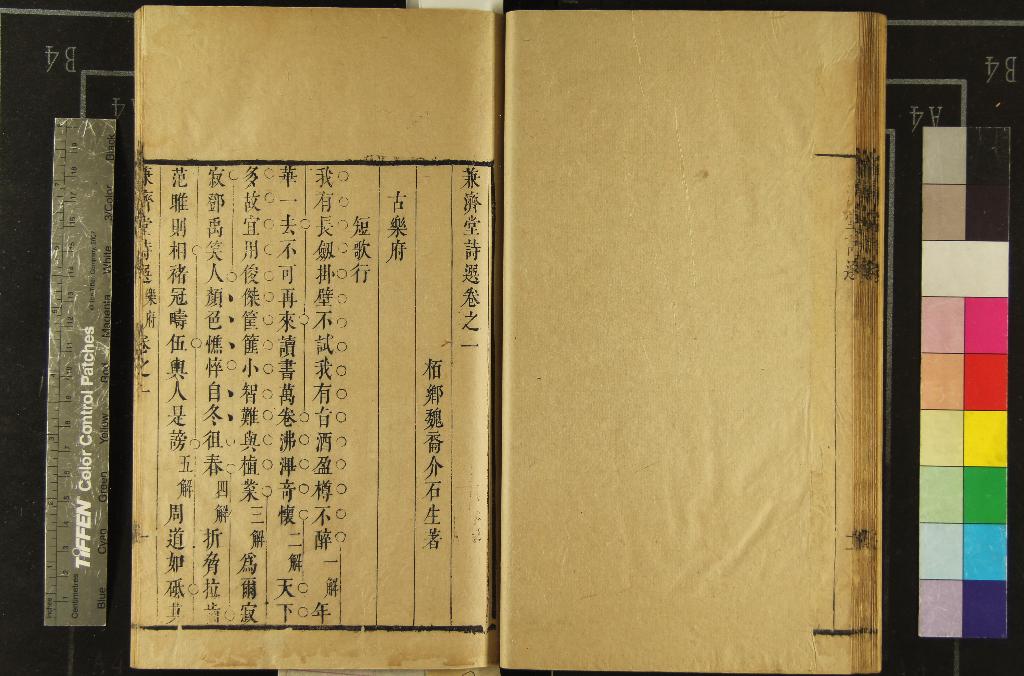 兼濟堂詩選卷之一
栢鄉魏裔介石生著
古樂府
短歌行
我有長劔掛壁不試我有旨酒盈樽不醉一解年
華一去不可再來讀書萬卷沸渾奇懷二解天下
多故宜用俊傑筐篚小智難與植業三解為爾寂
寂鄧禹笑人顏色憔悴自冬徂春四解折脅拉齒
范雎則相褚冠疇伍輿人是謗五解周道如砥其
兼濟堂詩選 樂府 卷之一
B4
A4
A4
B4
TIFFEN Color Control Patches
Blue
Cyan
Green
Yellow
Red
Magenta
White
3/Color
Black
Inches
Centimetres